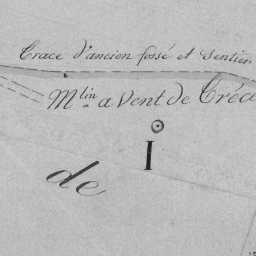 Trace d'ancien fossé et Sentier
Mlin a Vent de Tréd
I
de